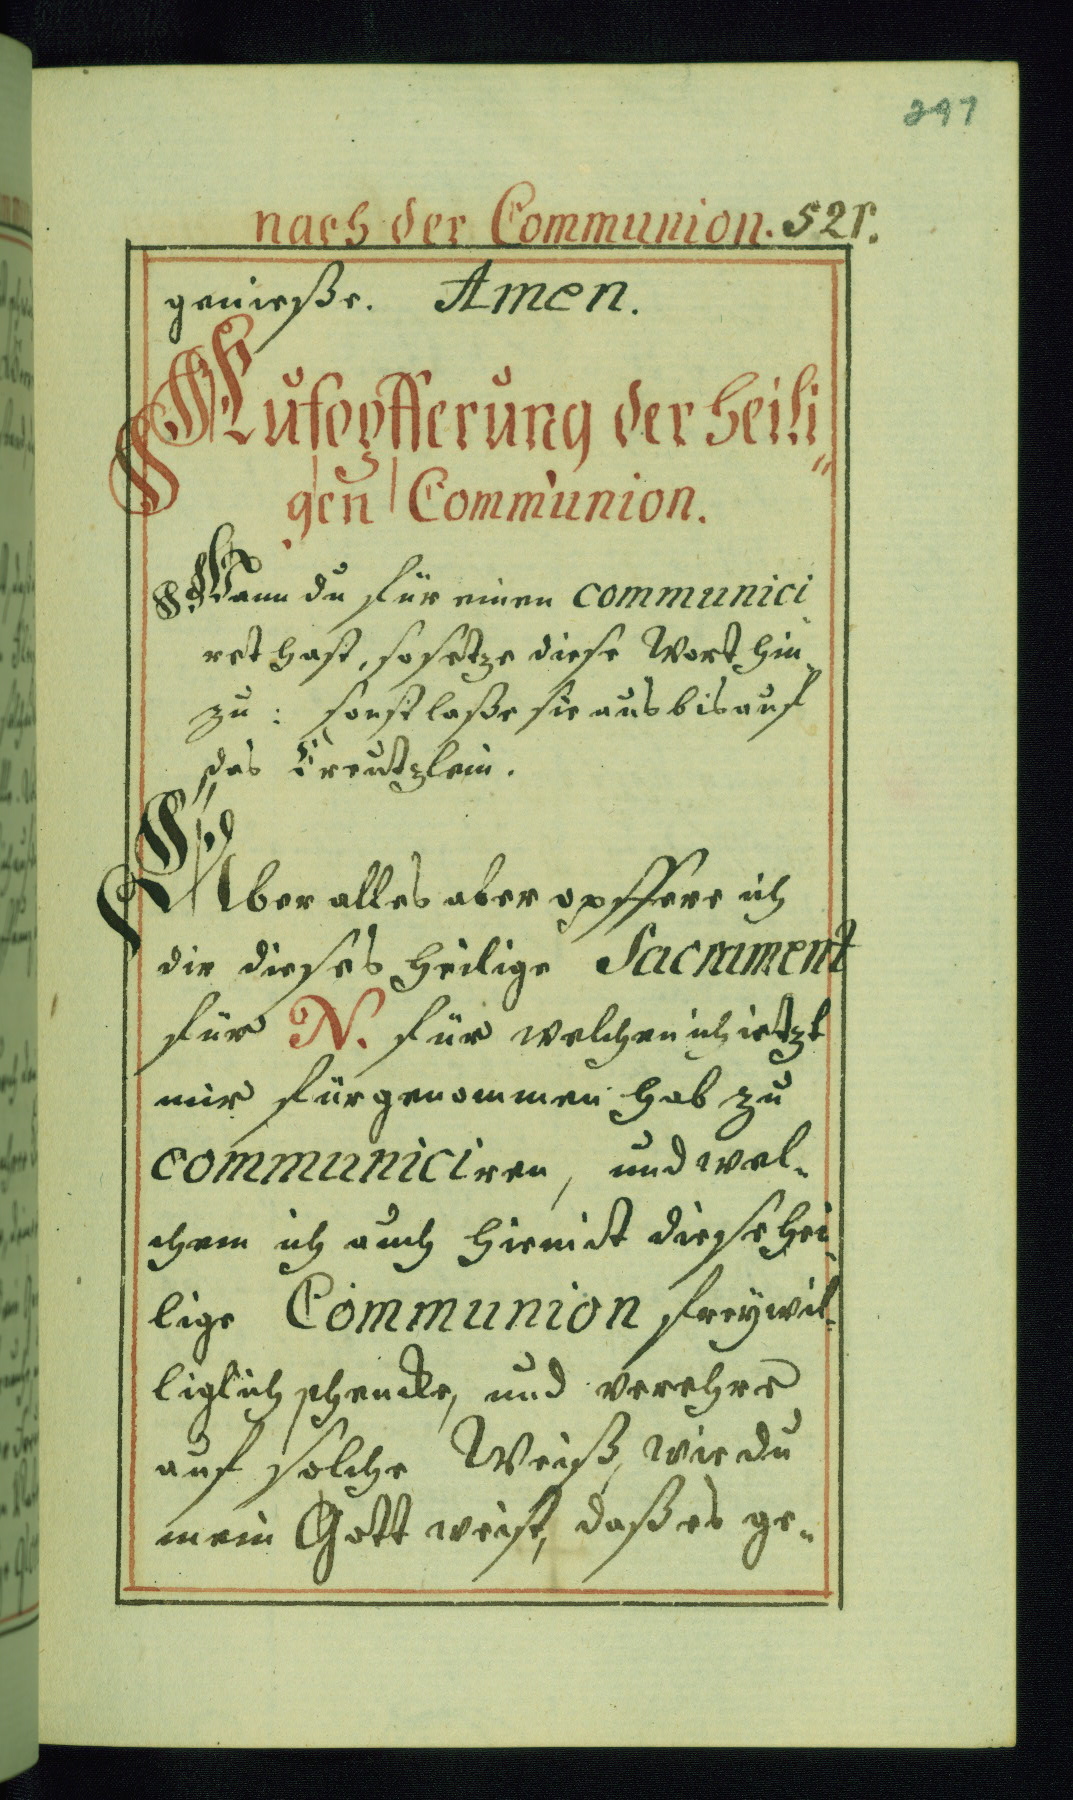 297
nach der Communion. 521.
genieße. Amen.
Aufopfferung der heili
gen Communion.
Wann du für einen communici
ret hast, so setze diese Wort hin
zu: sonst laße sie aus bis auf
das Creutzlein.
Uber alles aber opffere ich
dir dieses heilige Sacrament
für N. für welchen ich ietzt
mir fürgenommen hab zu
communiciren, und wel-
chem ich auch hiemit diese hei
lige Communion freÿwil-
liglich schencke, und verehre
auf solche Weiß, wie du
mein Gott weist, daß es ge-